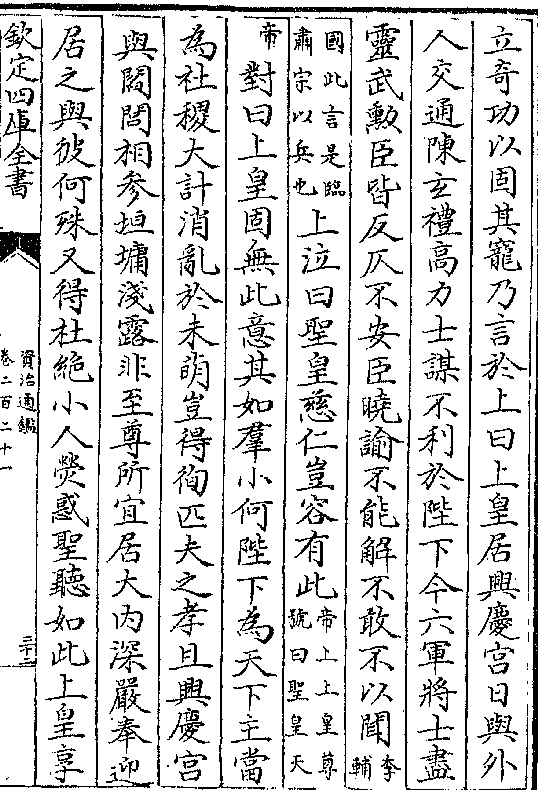 立奇功以固其寵乃言於上曰上皇居興慶宮日與外
人交通陳玄禮高力士謀不利於陛下今六軍將士盡
靈武勲臣皆反仄不安臣曉諭不能解不敢不以聞李輔
國此言是臨肅宗以兵也上泣曰聖皇慈仁豈容有此帝上上皇尊號曰聖皇天
帝對曰上皇固無此意其如羣小何陛下為天下主當
為社稷大計消亂於未萌豈得徇匹夫之孝且興慶宮
與閻閭相參垣墉淺露非至尊所宜居大内深嚴奉迎
居之與彼何殊又得杜絶小人熒惑聖聽如此上皇享
欽定四庫全書
資治通鑑
卷二百二十一
三十二